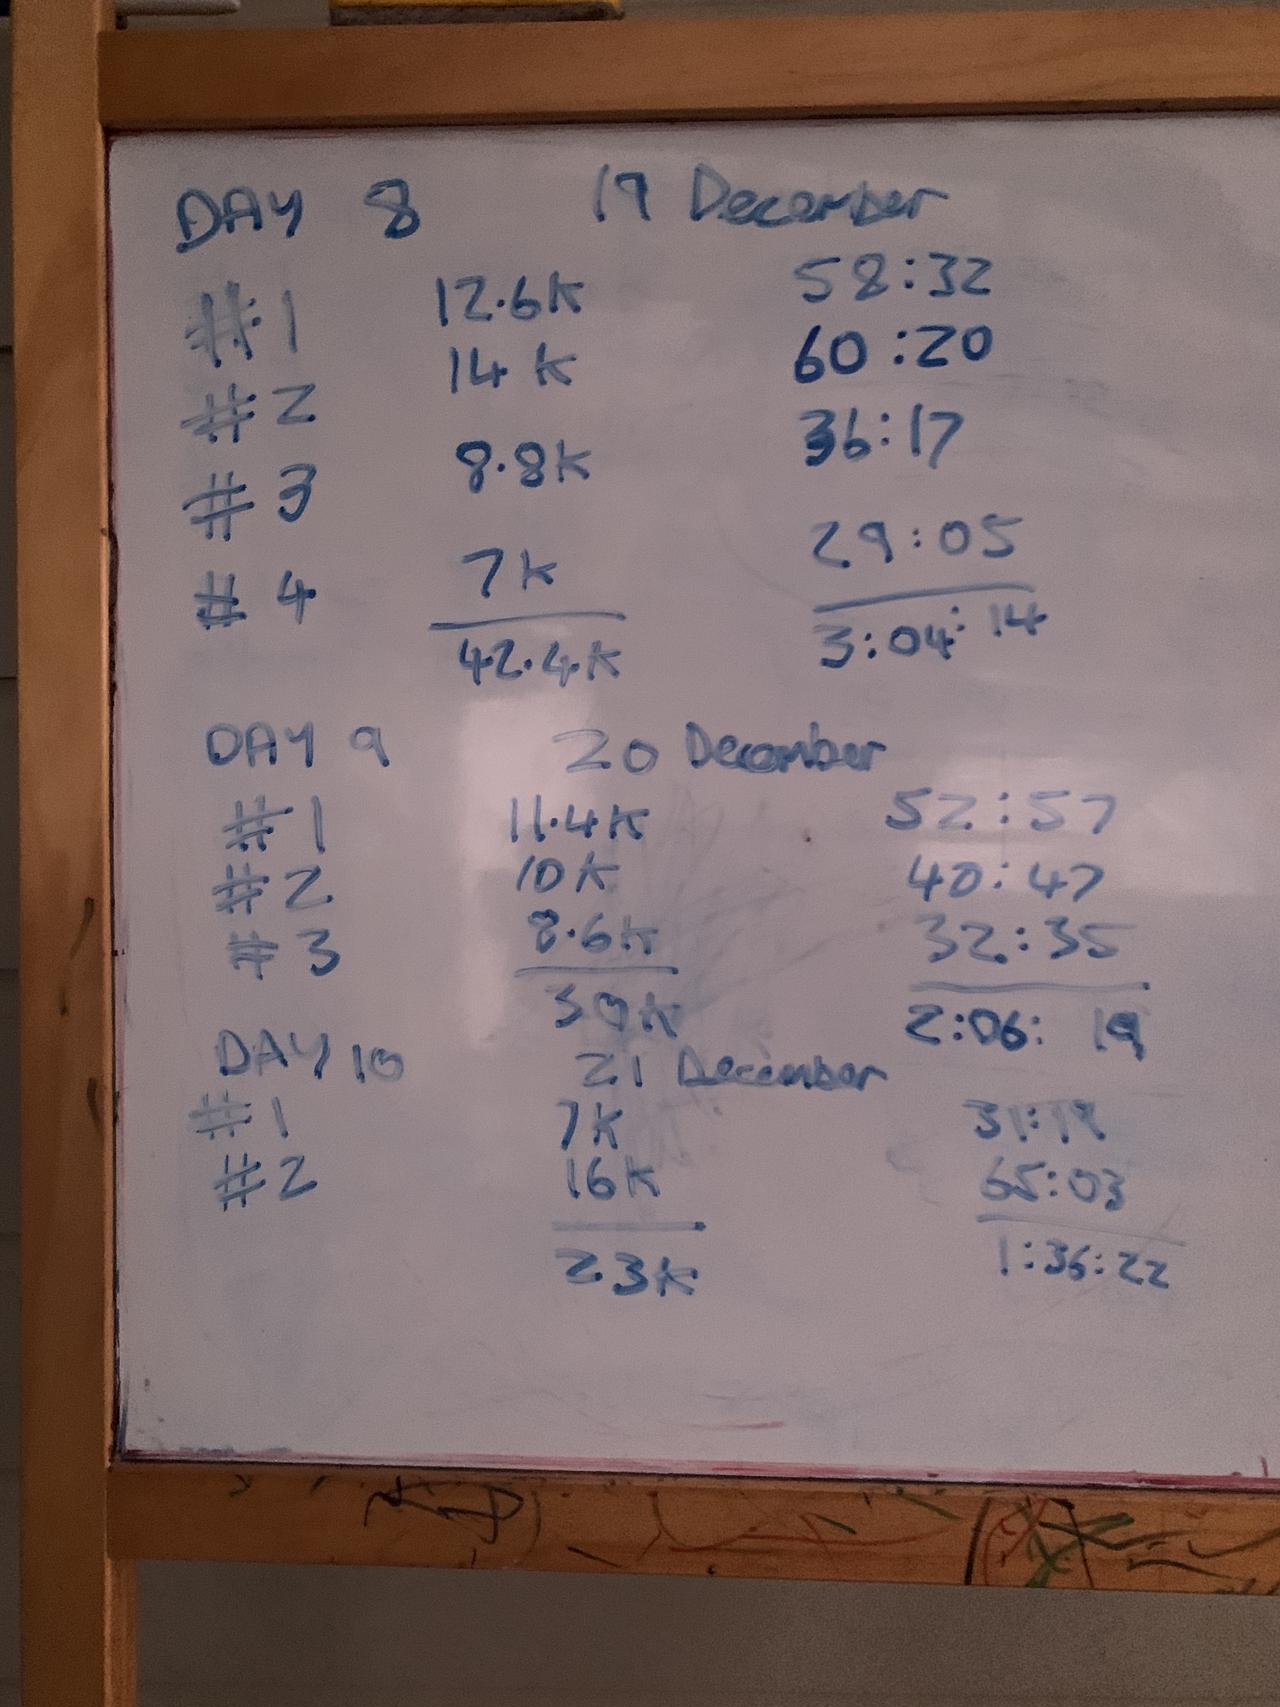 DAY 8 19 December
#1 12.6k 58:32
#2 14k 60:20
#3 8.8k 36:17
#4 7k 29:05
42.4k 3:04:14
DAY 9 20 December
#1 11.4k 52:57
#2 10k 40:47
#3 8.6k 32:35
30k 2:06:19
DAY 10 21 December
#1 7k 31:19
#2 16k 65:03
23k 1:36:22